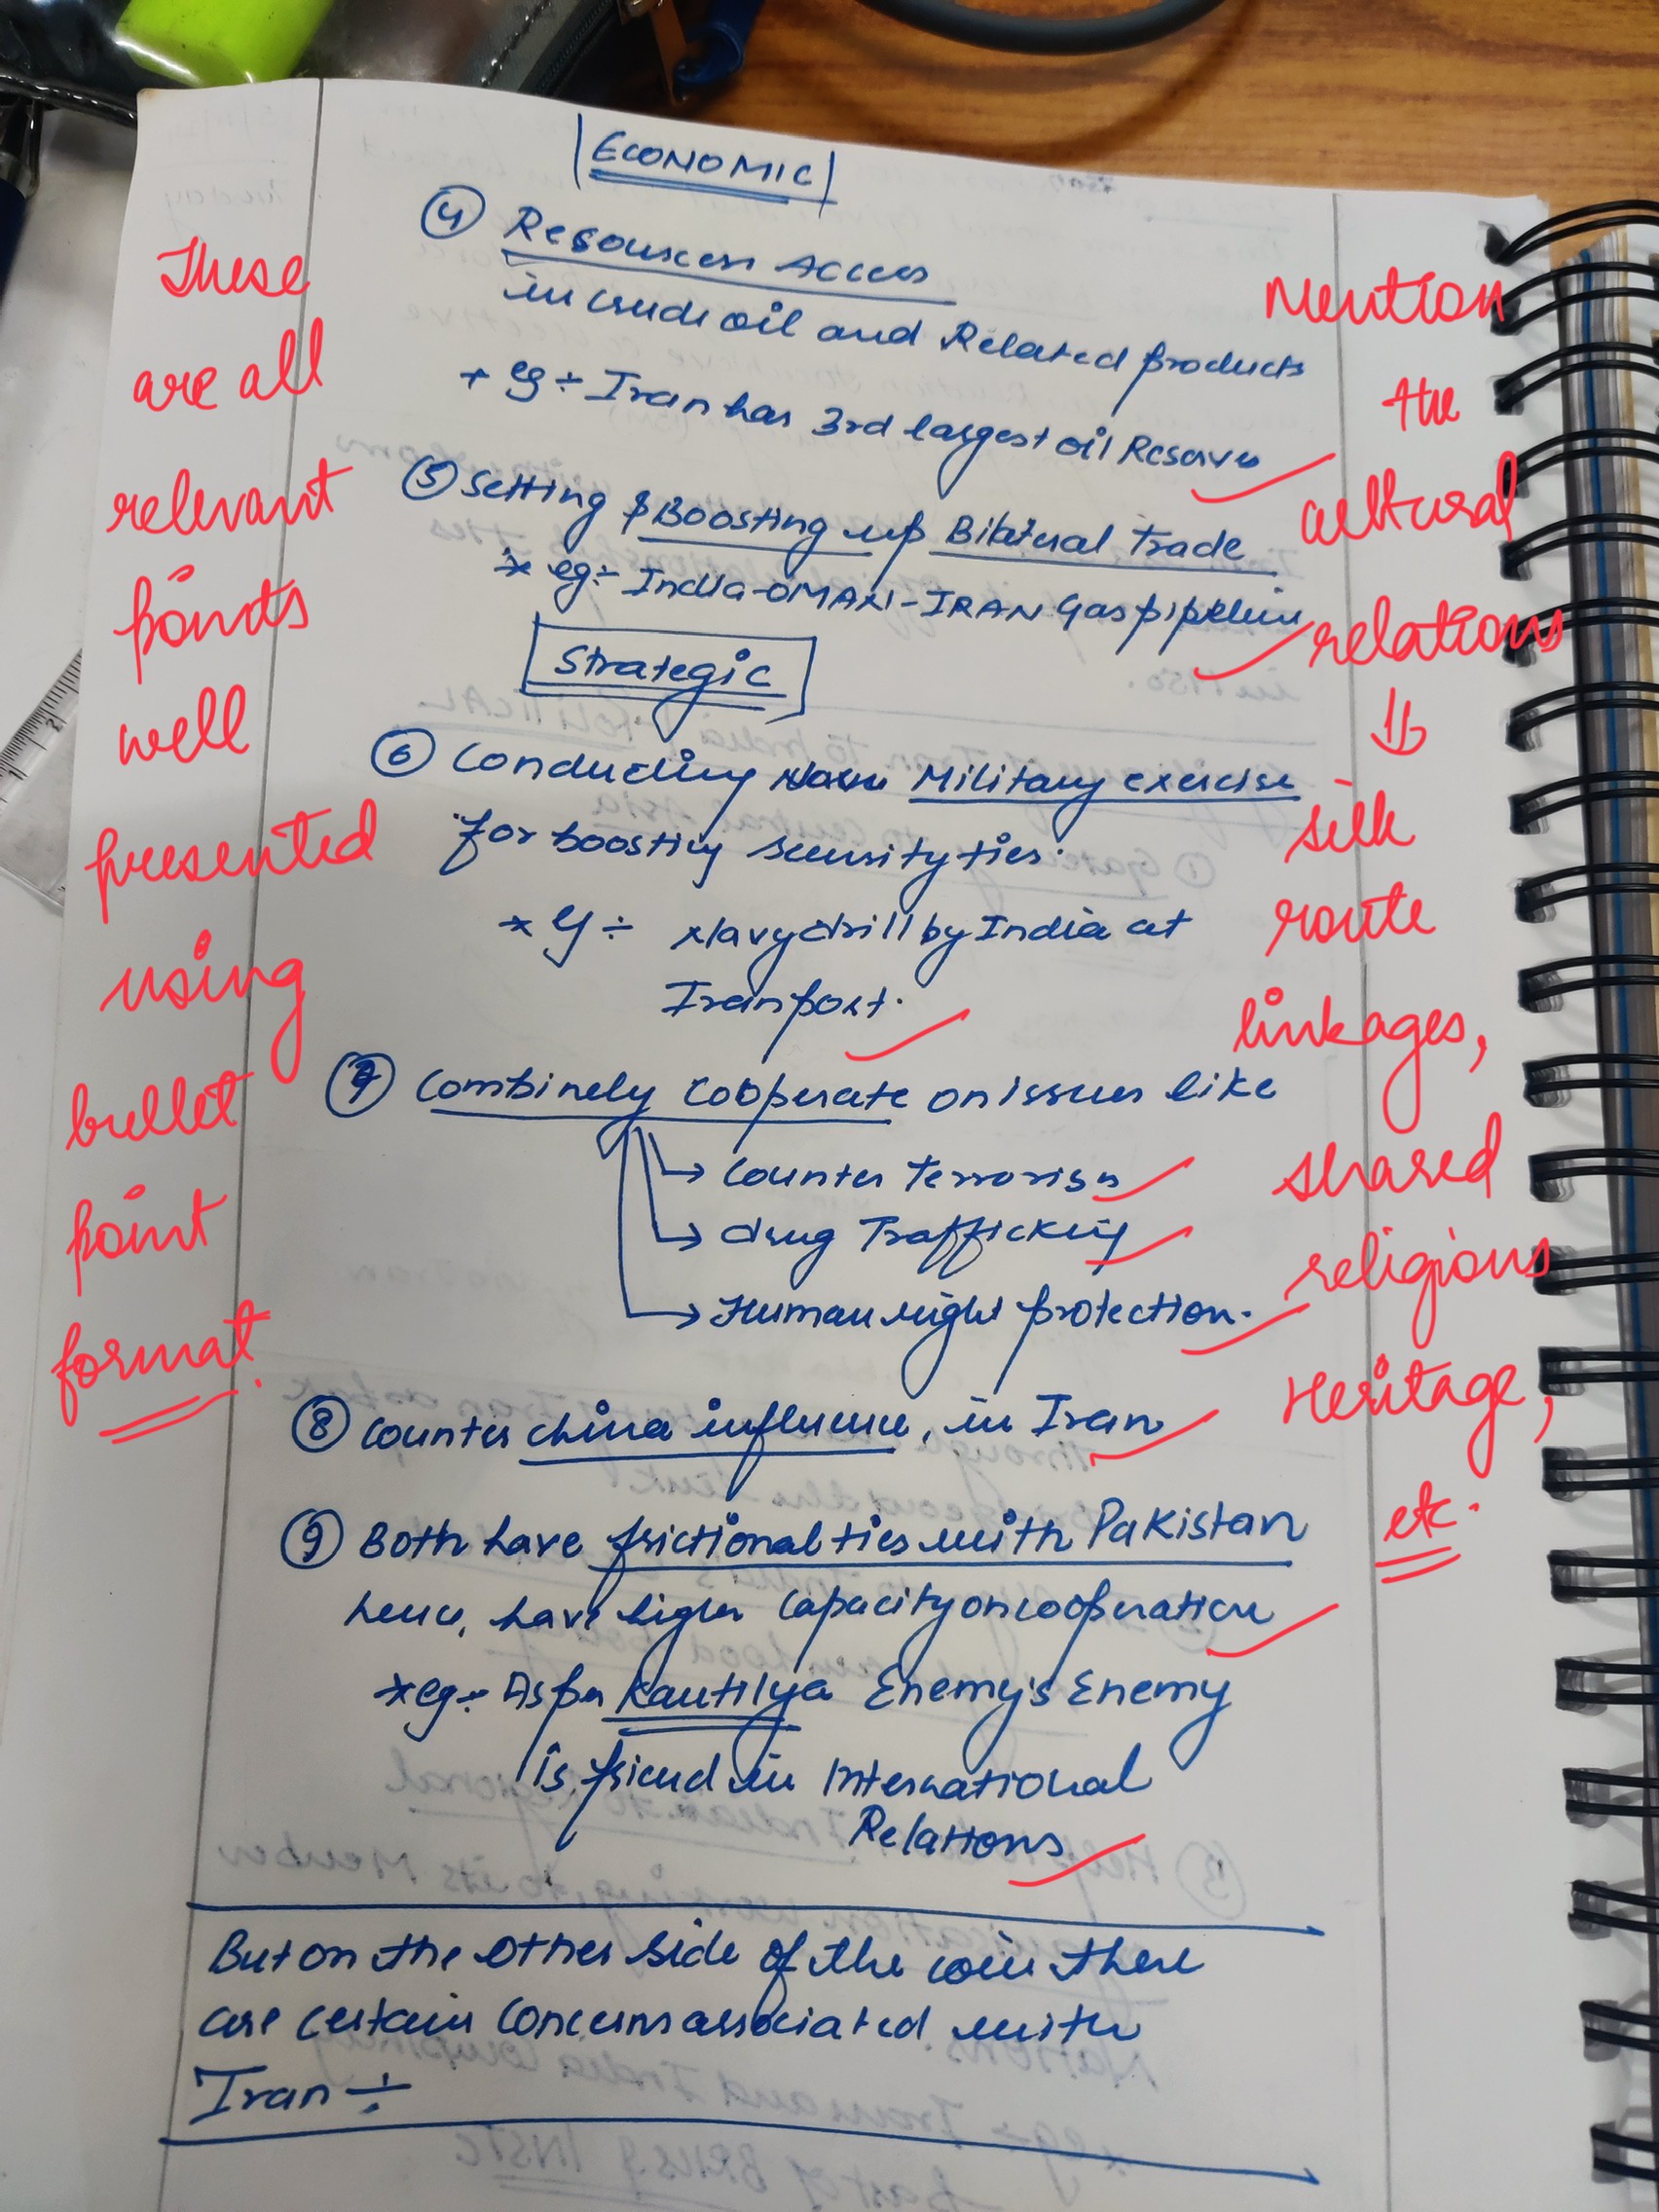 ECONOMIC
④ Resources Access
in crude oil and Related products
* eg ÷ Iran has 3rd largest oil Reserve
⑤ Setting & Boosting up Bilateral trade
* eg ÷ India-OMAN-IRAN Gas pipeline
Strategic
⑥ Conducting Military exercise
for boosting security ties.
* eg ÷ Navy drill by India at
Iran port.
⑦ Combinely cooperate on issues like
→ Counter terrorism
→ drug Trafficking
→ Human right protection.
⑧ Counter china influence, in Iran
⑨ Both have frictional ties with Pakistan
hence, have higher capacity on cooperation
* eg ÷ As per Kautilya Enemy's Enemy
is friend in International
Relations
But on the other side of the coin there
are certain concerns associated with
Iran ÷
These
are all
relevant
points
well
presented
using
bullet
point
format.
Mention
the
cultural
relations
⇓
silk
route
linkages,
shared
religious
Heritage,
etc.